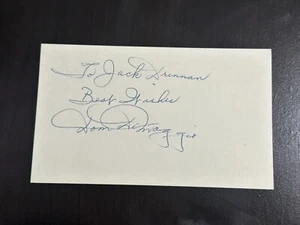 To Jack Drennan
Best Wishes
Dom DiMaggio